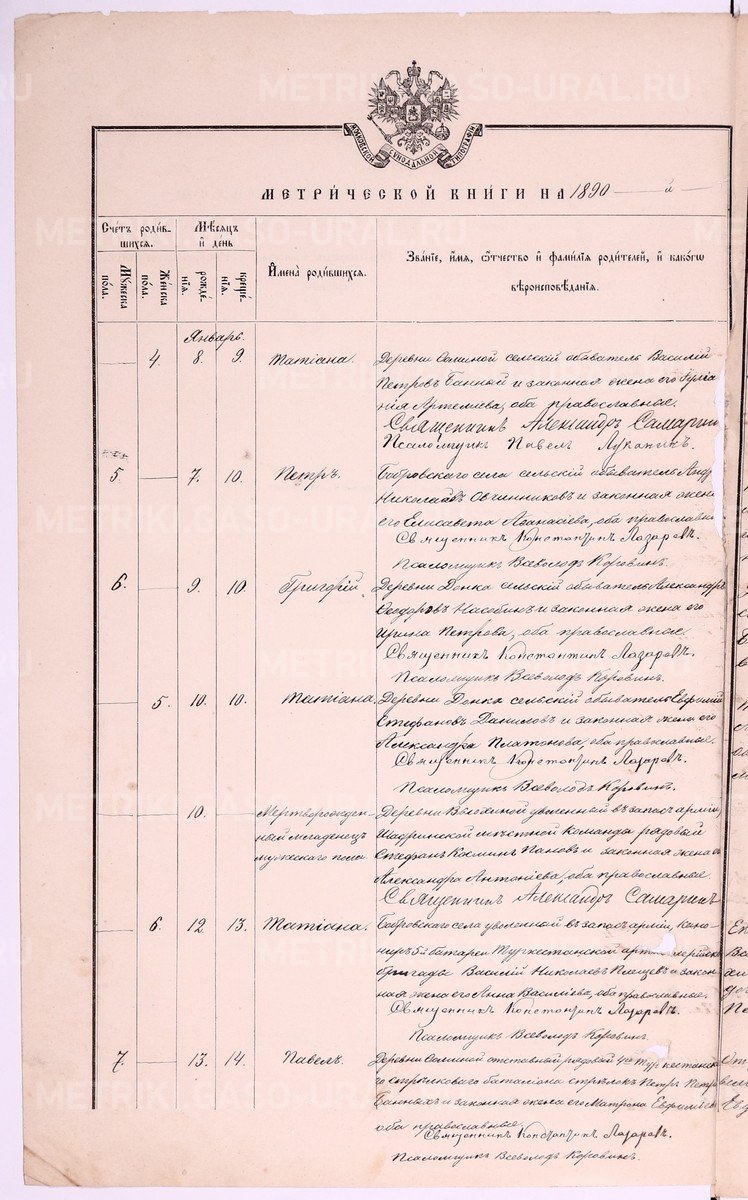 МОСКОВСКОЙ СУНОДАЛЬНОЙ ТИПОГРАФІИ
МЕТРИ́ЧЕСКОЙ КНИ́ГИ НА 1890 й
Сче́тъ роди́в-
шихся.
Мѣ́сяцъ
и҆ де́нь
И҆мена̀ роди́вшихся.
Зва́ніе, и҆́мя, ѻ҆́тчество и҆ фами́лія роди́телей, и҆ како́гѡ
вѣроисповѣ́данія.
Му́жеска
пола.
Же́нска
пола.
рожде́-
нія.
креще́-
нія.
Январь.
4. 8. 9. Татіана. Деревни Соминой сельскій обыватель Василій
Петровъ Банных и законная жена его
Артеміева, оба православные.
Священникъ Александръ Самаринъ
Псаломщикъ Павелъ Луканинъ.
5 7. 10. Петръ. Бобровскаго села сельскій обыватель
Николаевъ Овчинниковъ и законная жена
его Елисавета Аѳанасіева, оба православные
Священникъ Константинъ Лазаревъ.
Псаломщикъ Всеволодъ Коровинъ.
6. 9. 10. Григорій. Деревни Донка сельскій обыватель Александръ
Ѳеодоровъ Насобинъ и законная жена его
Ирина Петрова, оба православные.
Священникъ Константинъ Лазаревъ.
Псаломщикъ Всеволодъ Коровинъ.
5. 10. 10. Татіана. Деревни Донка сельскій обыватель Евфимій
Стефановъ Даниловъ и законная жена его
Александра Платонова, оба православные.
Священникъ Константинъ Лазаревъ.
Псаломщикъ Всеволодъ Коровинъ.
10. Мертворожден- Деревни Вьюхиной уволенный въ запасъ арміи,
ный младенецъ Шадринской мѣстной команды рядовый
мужескаго пола. Стефанъ Козминъ Пановъ и законная жена его
Александра Антоніева, оба православные.
Священникъ Александръ Самаринъ
6. 12. 13. Татіана. Бобровскаго села уволенный въ запасъ арміи, кано-
ниръ 5й батареи Туркестанской артиллерійской
бригады Василій Николаевъ Плещевъ и закон-
ная жена его Анна Василіева, оба православные.
Священникъ Константинъ Лазаревъ.
Псаломщикъ Всеволодъ Коровинъ.
7. 13. 14. Павелъ. Деревни Соминой отставный рядовой 4го Туркестанска-
го стрѣлковаго баталіона стрѣлокъ Петръ Петровъ
Банныхъ и законная жена его Матрона Евфиміева
оба православные.
Священникъ Константинъ Лазаревъ.
Псаломщикъ Всеволодъ Коровинъ.
METRIKI.GASO-URAL.RU